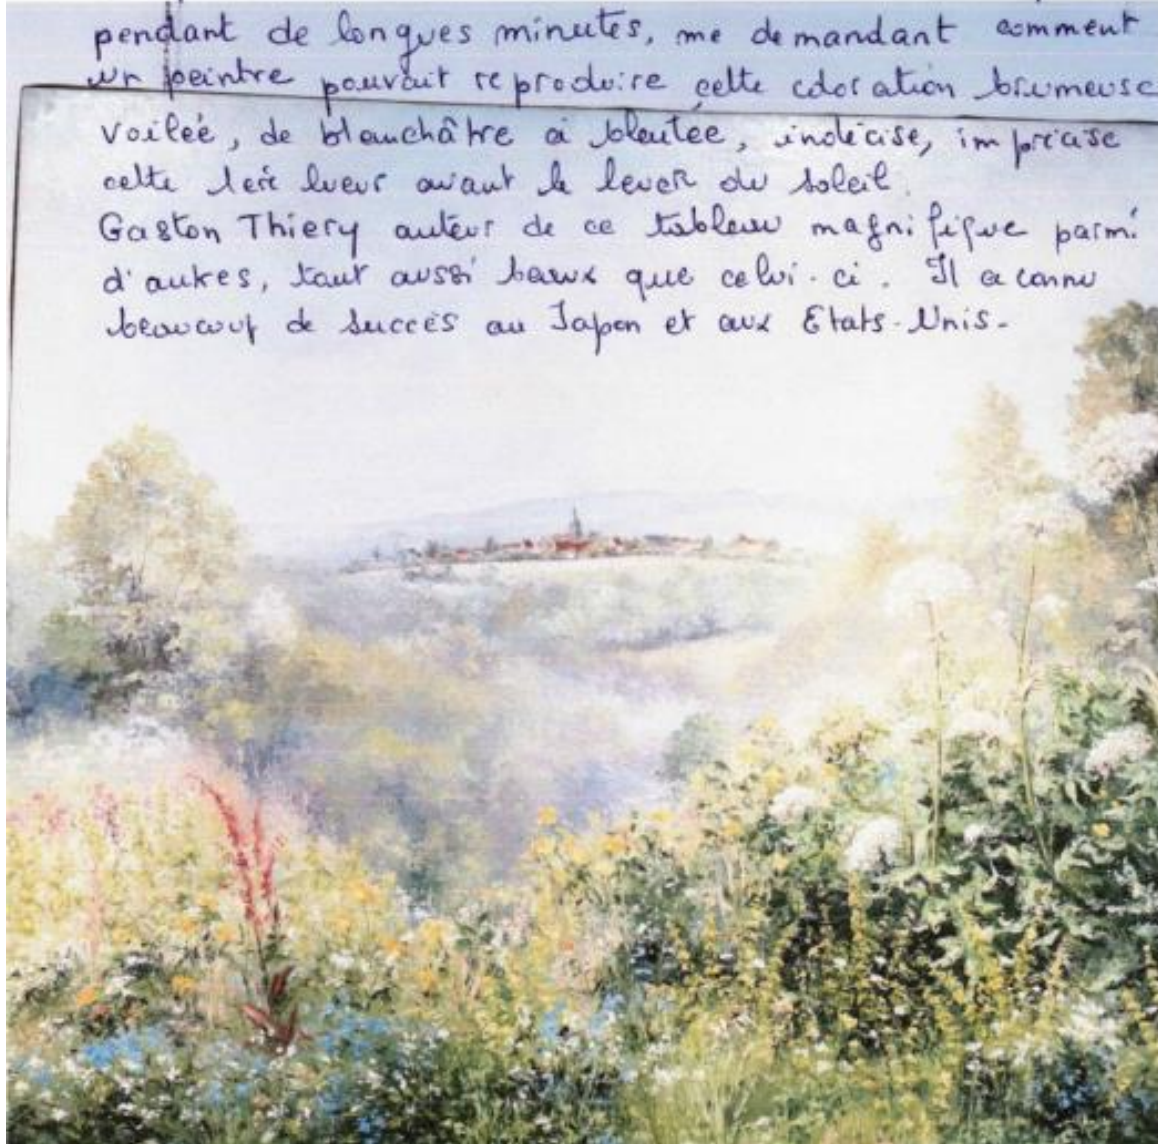 pendant de longues minutes, me demandant comment
un peintre pouvait reproduire cette coloration brumeuse
voilée, de blanchâtre à bleutée, indécise, imprécise
cette 1ère lueur avant le lever du soleil.
Gaston Thiery auteur de ce tableau magnifique parmi
d'autres, tout aussi beaux que celui-ci. Il a connu
beaucoup de succès au Japon et aux Etats-Unis.